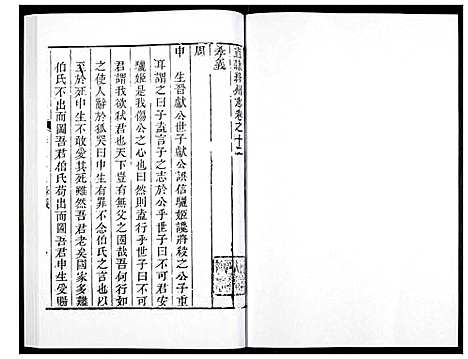 直隸絳州志卷之十二
孝義
周
申 生晉獻公世子獻公誤信驪姬讒將殺之公子重
耳謂之曰子盍言子之志於公乎世子曰不可君安
驪姬是我傷公之心也曰然則盍行乎世子曰不可
君謂我欲弑君也天下豈有無父之國哉吾何行如
之使人辭於狐突曰申生不念伯氏之言也以
至於死申生不敢愛其死雖然吾君老矣國家多難
伯氏不出而圖吾君伯氏苟出而圖吾君申生受賜